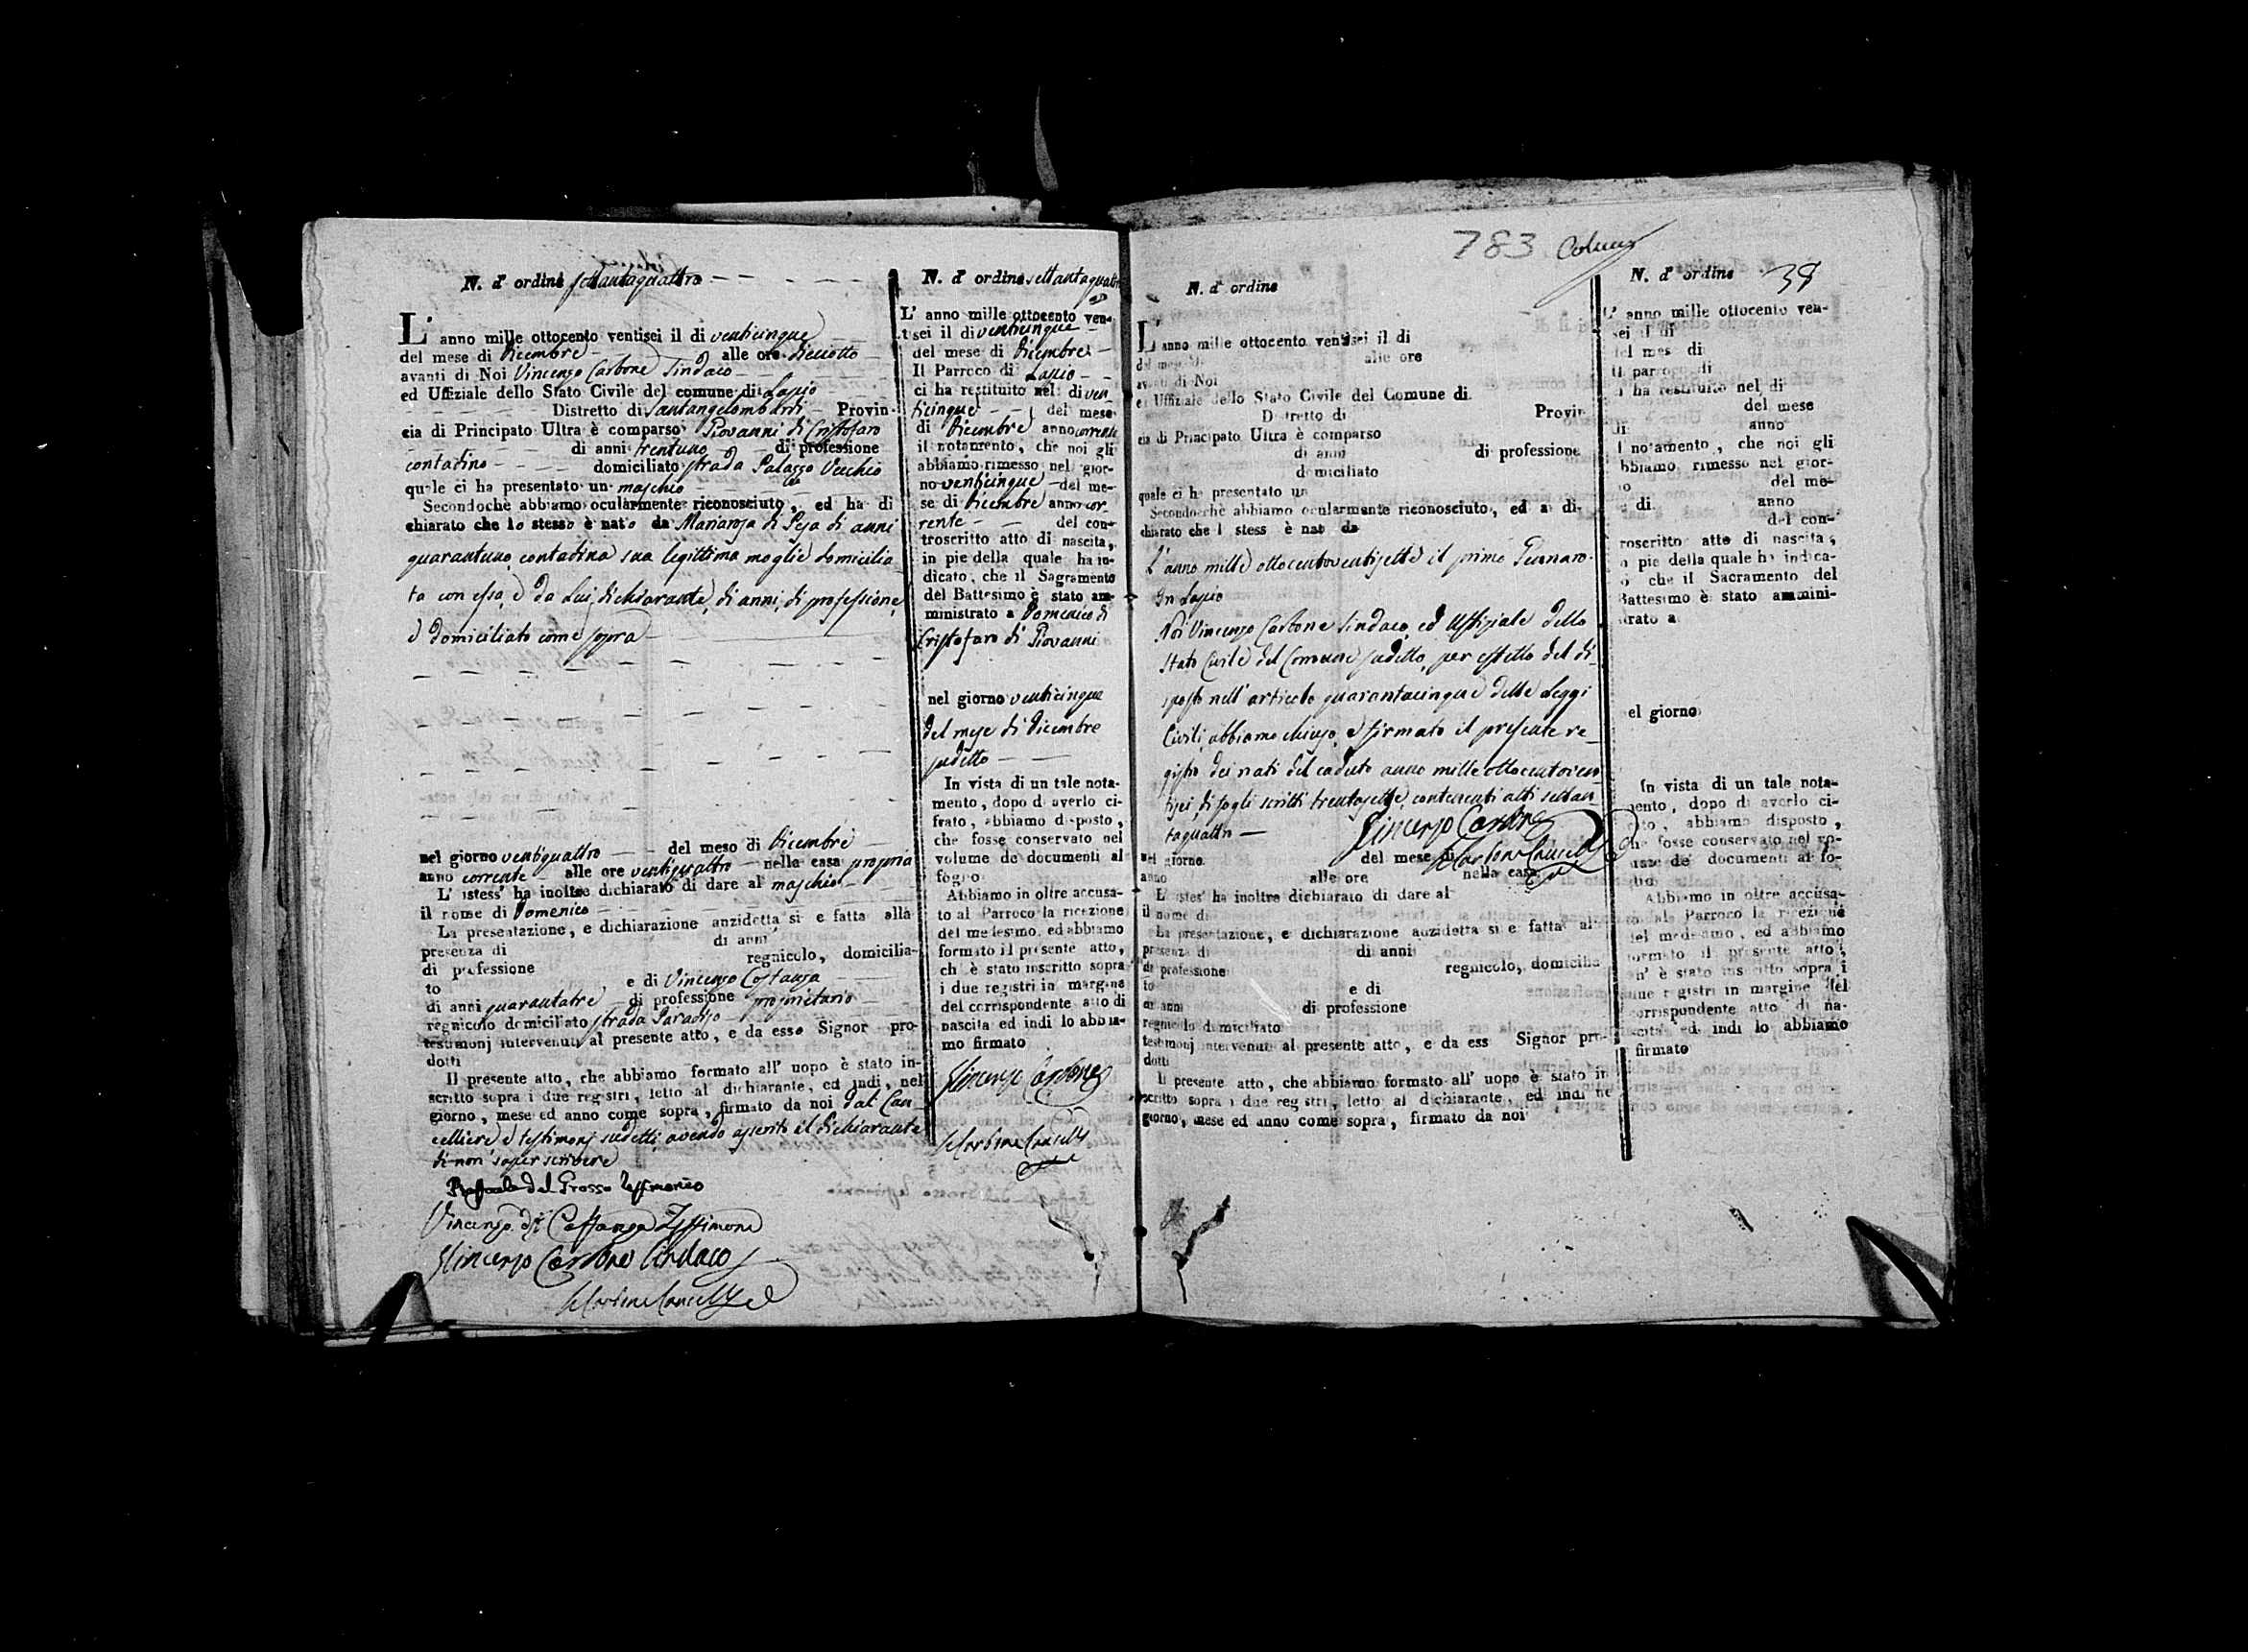 N. d' ordine settantaquattro
L' anno mille ottocento ventisei il di venticinque
del mese di Dicembre alle ore dieciotto
avanti di Noi Vincenzo Carbone Sindaco
ed Uffiziale dello Stato Civile del comune di Lapio
Distretto di Santangelombardi Provin-
cia di Principato Ultra è comparso Giovanni di Cristofaro
di anni trentuno di professione
contadino domiciliato strada Palazzo Vecchio
quale ci ha presentato un maschio
Secondochè abbiamo ocularmente riconosciuto, ed ha di
chiarato che lo stesso è nato da Mariarosa di Peja di anni
quarantuno contadina sua legittima moglie domicilia
ta con essa, e da Lui dichiarante, di anni, di professione,
e domiciliato come sopra
nel giorno ventiquattro del mese di Dicembre
anno corrente alle ore ventiquattro nella casa propria
L' istess' ha inoltre dichiarato di dare al maschio
il nome di Domenico
La presentazione, e dichiarazione anzidetta si e fatta alla
presenza di di anni
di professione regnicolo, domicilia-
to e di Vincenzo Costanza
di anni quarantatre di professione proprietario
regnicolo domiciliato strada Paradiso
testimonj intervenuti al presente atto, e da esso Signor pro-
dotti
Il presente atto, che abbiamo formato all' uopo è stato in-
scritto sopra i due registri, letto al dichiarante, ed indi, nel
giorno, mese ed anno come sopra, firmato da noi dal Can-
celliere e testimonj sudetti, avendo asserito il dichiarante
di non saper scrivere
Raffaele del Grosso Testimonio
Vincenzo di Costanza Testimone
Vincenzo Carbone Sindaco
N. d' ordine settantaquattro
L' anno mille ottocento ven-
tisei il di venticinque
del mese di Dicembre
Il Parroco di Lapio
ci ha restituito nel di ven
ticinque del mese
di Dicembre anno corrente
il notamento, che noi gli
abbiamo rimesso nel gior-
no venticinque del me-
se di Dicembre anno cor-
rente del con-
troscritto atto di nascita,
in pie della quale ha in-
dicato, che il Sagramento
del Battesimo è stato am-
ministrato a Domenico di
Cristofaro di Giovanni
nel giorno venticinque
del mese di Dicembre
sudetto
In vista di un tale nota-
mento, dopo d averlo ci-
frato, abbiamo disposto,
che fosse conservato nel
volume de documenti al
foglio
Abbiamo in oltre accusa-
to al Parroco la ricezione
del medesimo, ed abbiamo
formato il presente atto,
ch è stato inscritto sopra
i due registri in margine
del corrispondente atto di
nascita ed indi lo abbia-
mo firmato
Vincenzo Carbone
783
N. d' ordine
L' anno mille ottocento ventisei il di
del mese di alle ore
avanti di Noi
ed Uffiziale dello Stato Civile del Comune di
Distretto di Provin
cia di Principato Ultra è comparso
di anni di professione
domiciliato
quale ci ha presentato un
Secondochè abbiamo ocularmente riconosciuto, ed a di-
chiarato che l stess è nato da
L' anno mille ottocentoventisette il primo Gennaro
In Lapio
Noi Vincenzo Carbone Sindaco, ed Uffiziale dello
Stato Civile del Comune sudetto, per effetto del di-
sposto nell' articolo quarantacinque delle Leggi
Civili, abbiamo chiuso, e firmato il presente re-
gistro dei nati del caduto anno mille ottocentoven-
tisei, di fogli scritti trentasette, contenenti atti settan-
taquattro
Vincenzo Carbone
nel giorno del mese di
anno alle ore nella casa
L' istes' ha inoltre dichiarato di dare al
il nome di
La presentazione, e dichiarazione anzidetta si e fatta al
presenza di di anni
di professione regnicolo, domicilia
to e di
di anni di professione
regnicolo domiciliato
testimonj intervenuti al presente atto, e da ess Signor pro-
dotti
Il presente atto, che abbiamo formato all' uopo è stato in
scritto sopra i due registri, letto al dichiarante, ed indi ne
giorno, mese ed anno come sopra, firmato da noi
N. d' ordine 38
L' anno mille ottocento ven-
sei il di
del mes di
Il parroco di
i ha restituito nel di
del mese
di anno
l notamento, che noi gli
bbiamo rimesso nel gior-
no del me-
e di anno
del con-
roscritto atto di nascita,
n pie della quale ha indica-
o che il Sacramento del
Battesimo è stato ammini-
trato a
el giorno
In vista di un tale nota-
mento, dopo d averlo ci-
ato, abbiamo disposto,
he fosse conservato nel vo-
lume de' documenti al fo-
glio
Abbiamo in oltre accusa-
o al Parroco la ricezione
del medesimo, ed abbiamo
formato il presente atto,
ch' è stato inscritto sopra i
due registri in margine del
corrispondente atto di na-
scita ed indi lo abbiamo
firmato